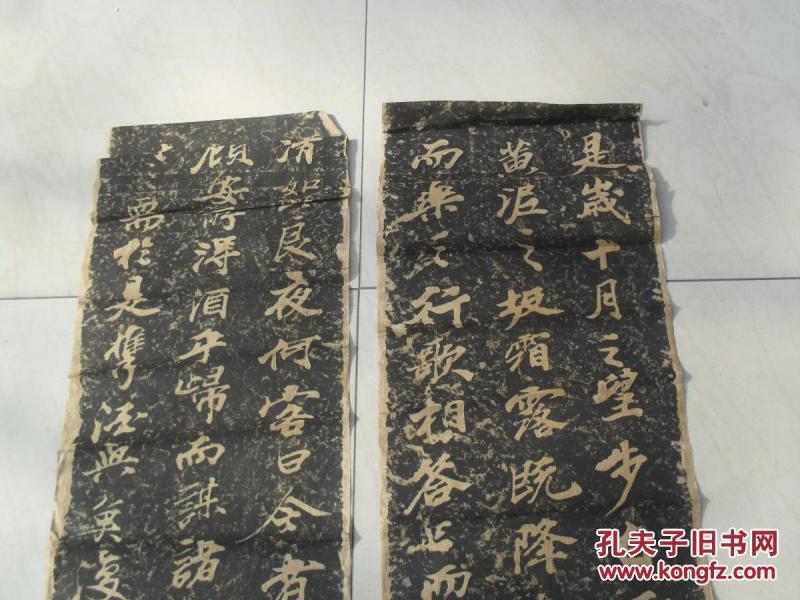 是歲十月之望步
黄泥之坂霜露既降
而樂之行歌相答已而
清如良夜何客曰今者
顧安所得酒乎歸而謀諸
需於是攜酒與魚復
孔夫子旧书网
www.kongfz.com